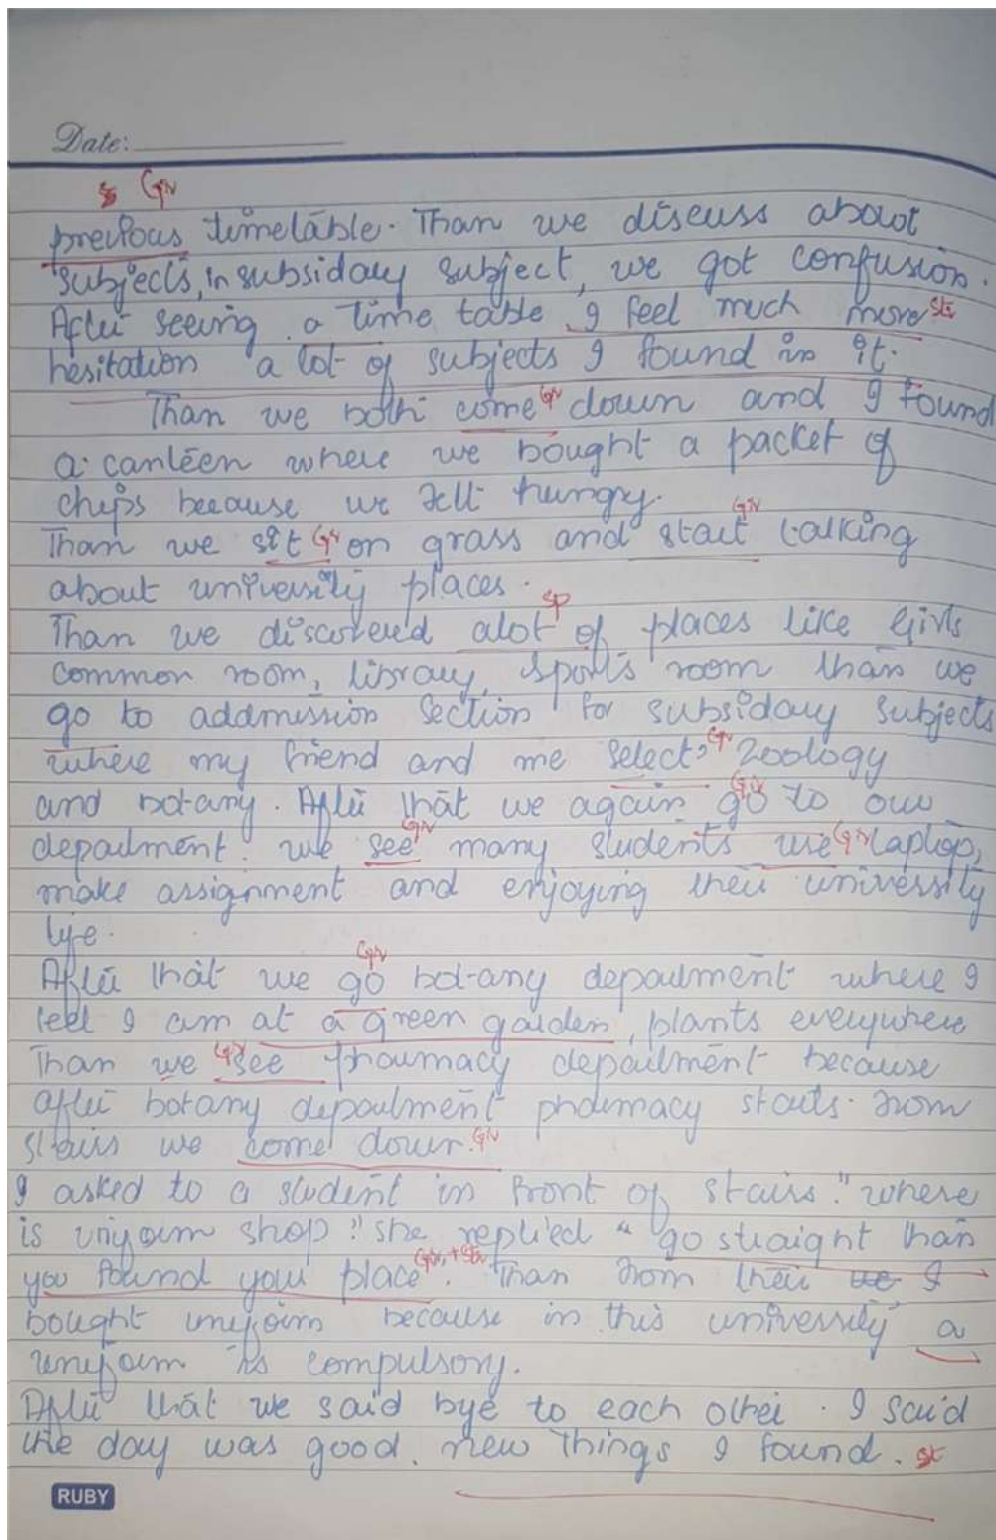 Date:
S Gr
previous timetable. Than we discuss about
subjects, in subsidary subject, we got confusion.
After seeing a time table, I feel much more St
hesitation a lot of subjects I found in it.
Than we both come Gr down and I found
a canteen where we bought a packet of
chips because we felt hungry.
Than we sit Gr on grass and start Gr talking
about university places.
Than we discovered alot Sp of places like Girls
common room, library, sports room than we
go to addmission section for subsidary subjects
where my friend and me select Gr Zoology
and botany. After that we again go Gr to our
department. we see Gr many students use Gr laptop,
make assignment and enjoying their university
life.
After that we go Gr botany department where I
feel I am at a green garden, plants everywhere
Than we Gr see pharmacy department because
after botany department pharmacy starts. From
stairs we come down. Gr
I asked to a student in front of stairs "where
is uniform shop" she replied "go straight than
you found your place Gr, + St. Than from their we I
bought uniform because in this university a
uniform is compulsory.
After that we said bye to each other. I said
the day was good. new things I found. St
RUBY